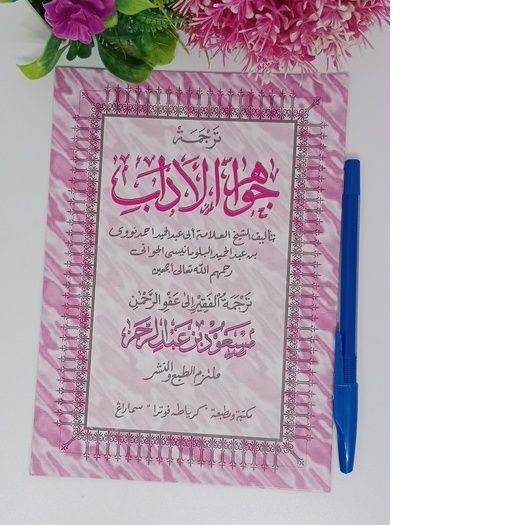 ترجمة
جواهر الأداب
تأليف الشيخ العلامة أبى عبد الحميد احمد نووى
بن عبد الحميد البلومانيسى الجوانى
رحمهم الله تعالى أجمعين
ترجمة الفقير إلى عفو الرحمن
مسعود بن عبد الرحمن
ملتزم الطبع والنشر
مكتبة ومطبعة "كرياطه فوترا" سماراڠ